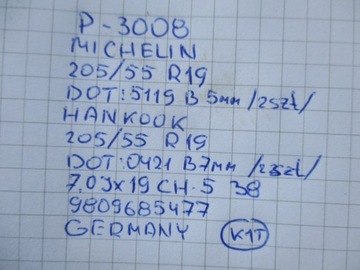 P-3008
MICHELIN
205/55 R19
DOT:5119 B 5mm /2szt/
HANKOOK
205/55 R19
DOT:0421 B7mm /2szt/
7,0Jx19 CH-5 38
9809685477
GERMANY K1T